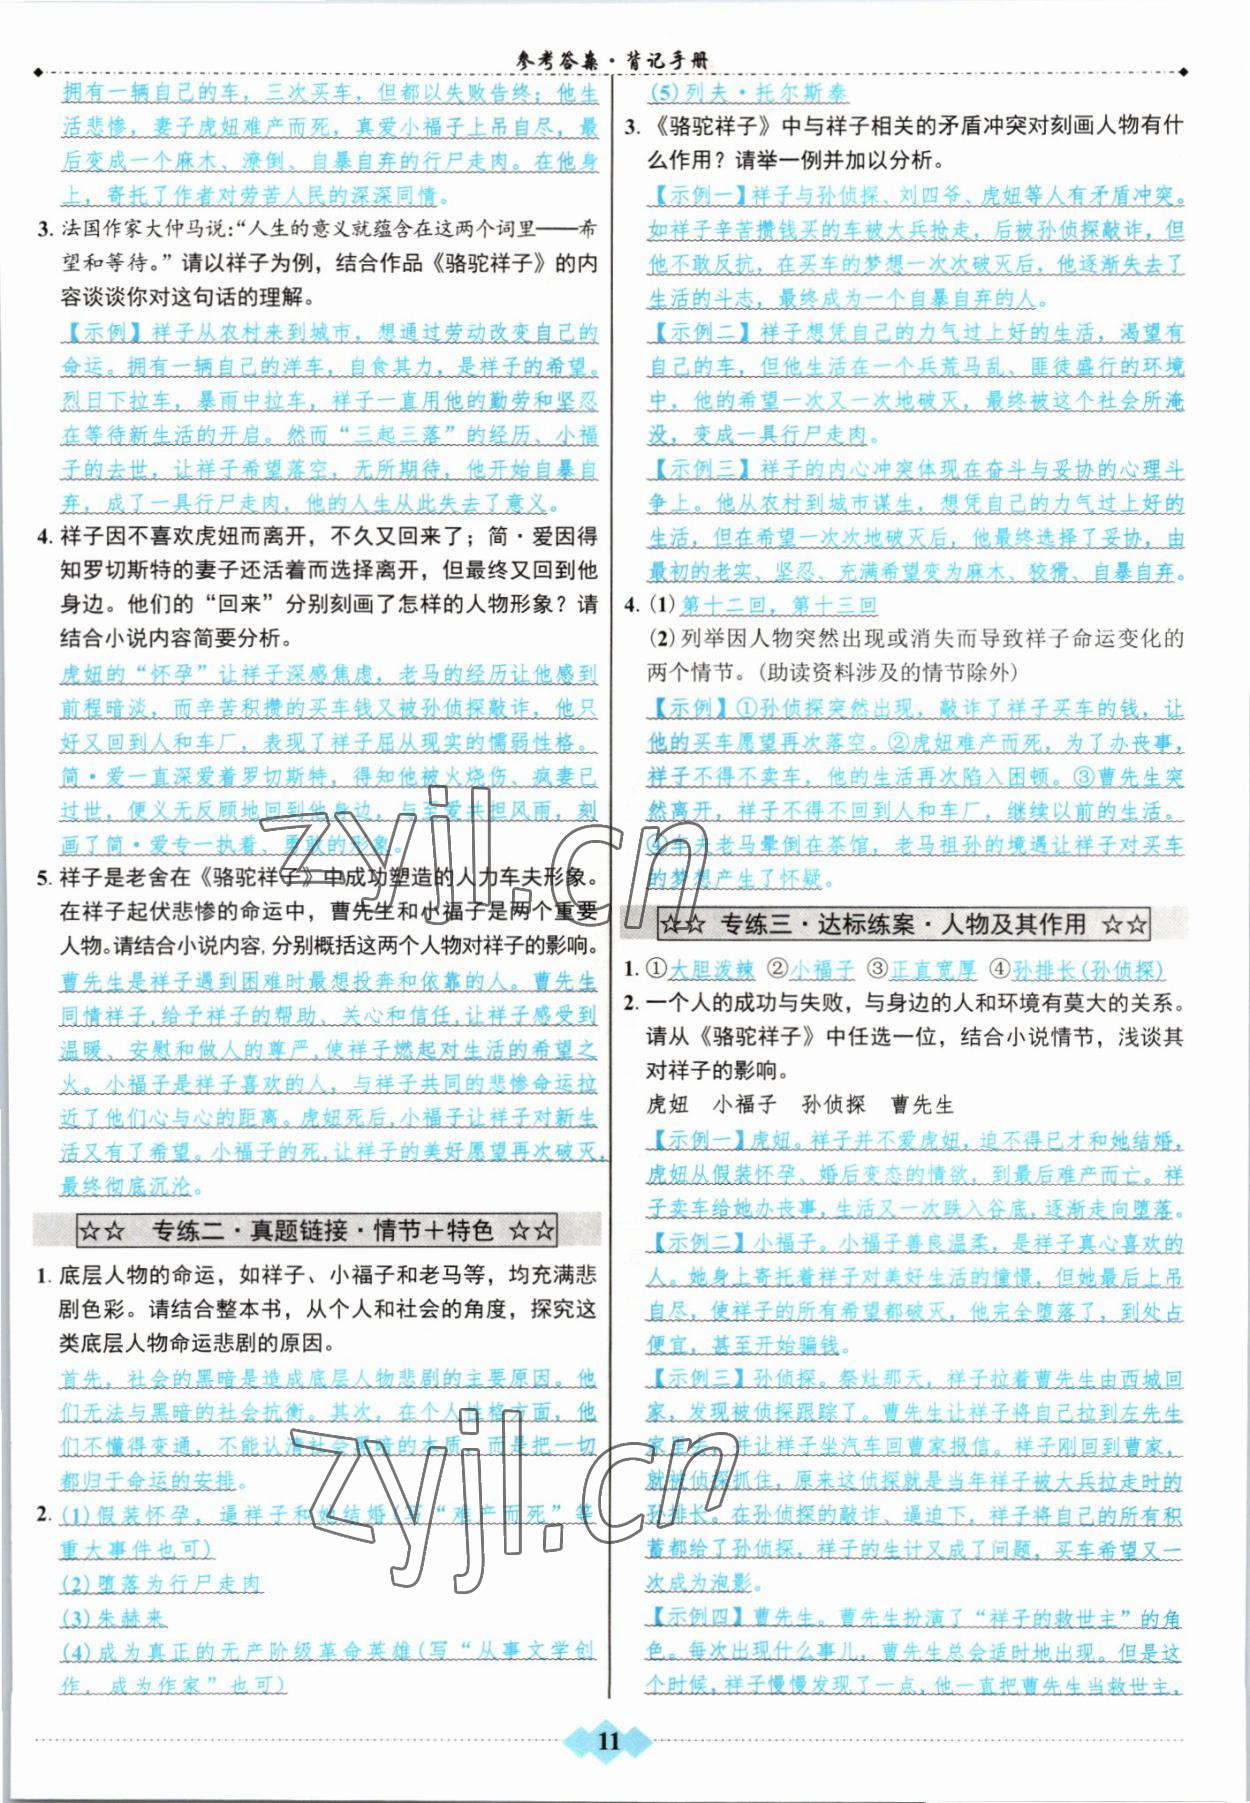 参考答案·背记手册
拥有一辆自己的车，三次买车，但都以失败告终；他生
活悲惨，妻子虎妞难产而死，真爱小福子上吊自尽，最
后变成一个麻木、潦倒、自暴自弃的行尸走肉。在他身
上，寄托了作者对劳苦人民的深深同情。
3. 法国作家大仲马说：“人生的意义就蕴含在这两个词里——希
望和等待。”请以祥子为例，结合作品《骆驼祥子》的内
容谈谈你对这句话的理解。
【示例】祥子从农村来到城市，想通过劳动改变自己的
命运。拥有一辆自己的洋车，自食其力，是祥子的希望。
烈日下拉车，暴雨中拉车，祥子一直用他的勤劳和坚忍
在等待新生活的开启。然而“三起三落”的经历、小福
子的去世，让祥子希望落空，无所期待，他开始自暴自
弃，成了一具行尸走肉，他的人生从此失去了意义。
4. 祥子因不喜欢虎妞而离开，不久又回来了；简·爱因得
知罗切斯特的妻子还活着而选择离开，但最终又回到他
身边。他们的“回来”分别刻画了怎样的人物形象？请
结合小说内容简要分析。
虎妞的“怀孕”让祥子深感焦虑，老马的经历让他感到
前程暗淡，而辛苦积攒的买车钱又被孙侦探敲诈，他只
好又回到人和车厂，表现了祥子屈从现实的懦弱性格。
简·爱一直深爱着罗切斯特，得知他被火烧伤、疯妻已
过世，便义无反顾地回到他身边，与
爱共担风雨，刻
画了简·爱专一执着、勇敢的形象。
5. 祥子是老舍在《骆驼祥子》中成功塑造的人力车夫形象。
在祥子起伏悲惨的命运中，曹先生和小福子是两个重要
人物。请结合小说内容，分别概括这两个人物对祥子的影响。
曹先生是祥子遇到困难时最想投奔和依靠的人。曹先生
同情祥子，给予祥子的帮助、关心和信任，让祥子感受到
温暖、安慰和做人的尊严，使祥子燃起对生活的希望之
火。小福子是祥子喜欢的人，与祥子共同的悲惨命运拉
近了他们心与心的距离。虎妞死后，小福子让祥子对新生
活又有了希望。小福子的死，让祥子的美好愿望再次破灭，
最终彻底沉沦。
☆☆ 专练二·真题链接·情节＋特色 ☆☆
1. 底层人物的命运，如祥子、小福子和老马等，均充满悲
剧色彩。请结合整本书，从个人和社会的角度，探究这
类底层人物命运悲剧的原因。
首先，社会的黑暗是造成底层人物悲剧的主要原因。他
们无法与黑暗的社会抗衡。其次，在个人性格方面，他
们不懂得变通，不能认清社会黑暗的本质，而是把一切
都归于命运的安排。
2. (1)假装怀孕，逼祥子和她结婚(写“难产而死”等
重大事件也可)
(2)堕落为行尸走肉
(3)朱赫来
(4)成为真正的无产阶级革命英雄(写“从事文学创
作，成为作家”也可)
(5)列夫·托尔斯泰
3. 《骆驼祥子》中与祥子相关的矛盾冲突对刻画人物有什
么作用？请举一例并加以分析。
【示例一】祥子与孙侦探、刘四爷、虎妞等人有矛盾冲突。
如祥子辛苦攒钱买的车被大兵抢走，后被孙侦探敲诈，但
他不敢反抗，在买车的梦想一次次破灭后，他逐渐失去了
生活的斗志，最终成为一个自暴自弃的人。
【示例二】祥子想凭自己的力气过上好的生活，渴望有
自己的车，但他生活在一个兵荒马乱、匪徒盛行的环境
中，他的希望一次又一次地破灭，最终被这个社会所淹
没，变成一具行尸走肉。
【示例三】祥子的内心冲突体现在奋斗与妥协的心理斗
争上。他从农村到城市谋生，想凭自己的力气过上好的
生活，但在希望一次次地破灭后，他选择了妥协，由
最初的老实、坚忍、充满希望变为麻木、狡猾、自暴自弃。
4. (1)第十二回，第十三回
(2)列举因人物突然出现或消失而导致祥子命运变化的
两个情节。(助读资料涉及的情节除外)
【示例】①孙侦探突然出现，敲诈了祥子买车的钱，让
他的买车愿望再次落空。②虎妞难产而死，为了办丧事，
祥子不得不卖车，他的生活再次陷入困顿。③曹先生突
然离开，祥子不得不回到人和车厂，继续以前的生活。
④车夫老马晕倒在茶馆，老马祖孙的境遇让祥子对买车
的梦想产生了怀疑。
☆☆ 专练三·达标练案·人物及其作用 ☆☆
1. ①大胆泼辣 ②小福子 ③正直宽厚 ④孙排长(孙侦探)
2. 一个人的成功与失败，与身边的人和环境有莫大的关系。
请从《骆驼祥子》中任选一位，结合小说情节，浅谈其
对祥子的影响。
虎妞 小福子 孙侦探 曹先生
【示例一】虎妞。祥子并不爱虎妞，迫不得已才和她结婚，
虎妞从假装怀孕、婚后变态的情欲，到最后难产而亡。祥
子卖车给她办丧事，生活又一次跌入谷底，逐渐走向堕落。
【示例二】小福子。小福子善良温柔，是祥子真心喜欢的
人。她身上寄托着祥子对美好生活的憧憬，但她最后上吊
自尽，使祥子的所有希望都破灭，他完全堕落了，到处占
便宜，甚至开始骗钱。
【示例三】孙侦探。祭灶那天，祥子拉着曹先生从西城回
家，发现被侦探跟踪了。曹先生让祥子将自己拉到左先生
家
并让祥子坐汽车回曹家报信。祥子刚回到曹家，
就被侦探抓住，原来这侦探就是当年祥子被大兵拉走时的
孙排长。在孙侦探的敲诈、逼迫下，祥子将自己的所有积
蓄都给了孙侦探，祥子的生计又成了问题，买车希望又一
次成为泡影。
【示例四】曹先生。曹先生扮演了“祥子的救世主”的角
色。每次出现什么事儿，曹先生总会适时地出现。但是这
个时候，祥子慢慢发现了一点，他一直把曹先生当救世主，
11
zyjl.cn
zyjl.cn